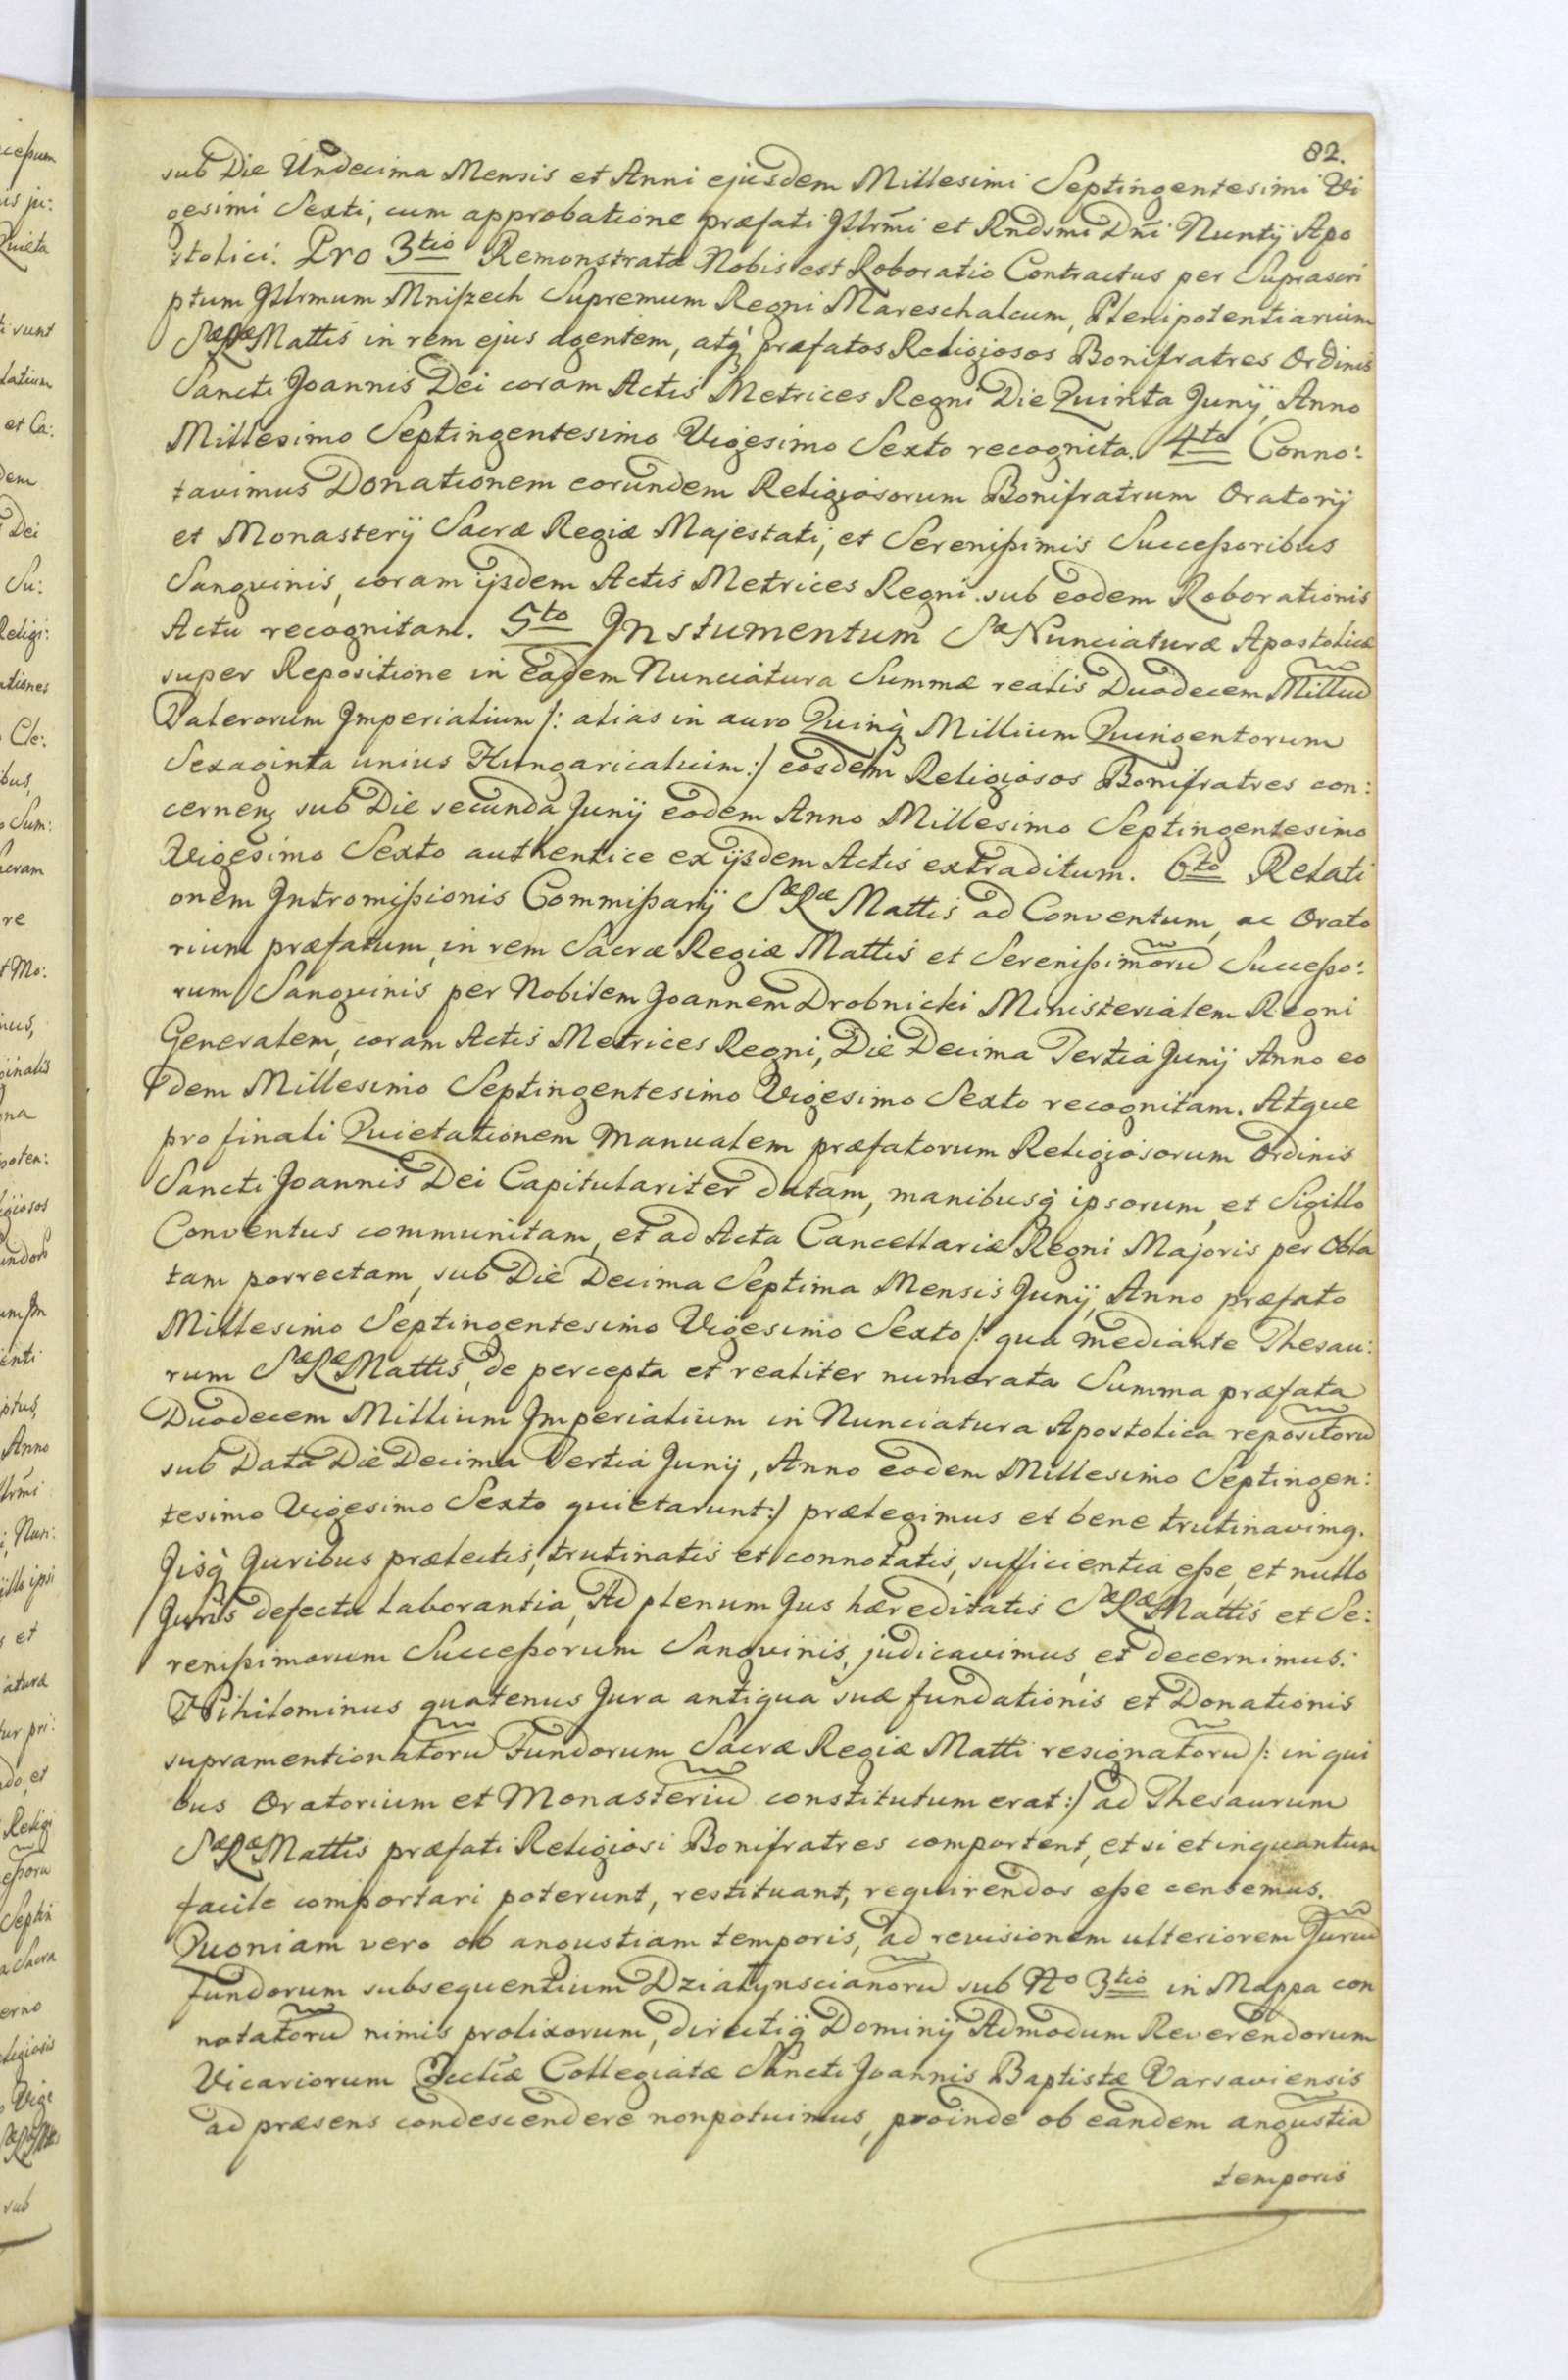 82.
sub Die Undecima Mensis et Anni ejusdem Millesimi Septingentesimi Vi
gesimi Sexti, cum approbatione præfati Jllrmi et Rndsmi Dni Nuntij Apo
stolici. Pro 3tio Remonstrata Nobis est Roboratio Contractus per Suprascri
ptum Jllrmum Mniszech Supremum Regni Mareschalcum, Plenipotentiarium
SæRæ Mattis in rem ejus agentem, atq præfatos Religiosos Bonifratres Ordinis
Sancti Joannis Dei coram Actis Metrices Regni Die Quinta Junij, Anno
Millesimo Septingentesimo Vigesimo Sexto recognita. 4to Conno:
tavimus Donationem eorundem Religiosorum Bonifratrum Oratorij
et Monasterij Sacræ Regiæ Majestati, et Serenißimis Succeßoribus
Sangvinis, coram ijsdem Actis Metrices Regni sub eodem Roborationis
Actu recognitam. 5to Jnstumentum Sæ Nunciaturæ Apostolicæ
super Repositione in eadem Nunciatura Summæ realis Duodecem Milliu
Talerorum Jmperialium /: alias in auro Quinq Millium Quingentorum
Sexaginta unius Hungaricalium :/ eosdem Religiosos Bonifratres con:
cernens sub Die secunda Junij eodem Anno Millesimo Septingentesimo
Vigesimo Sexto authentice ex ijsdem Actis extraditum. 6to Relati
onem Jntromißionis Commißarij SæRæ Mattis ad Conventum, ac Orato
rium præfatum, in rem Sacræ Regiæ Mattis et Serenißimoru Succeßo:
rum Sangvinis per Nobilem Joannem Drobnicki Ministerialem Regni
Generalem, coram Actis Metrices Regni, Die Decima Tertia Junij Anno eo
dem Millesimo Septingentesimo Vigesimo Sexto recognitam. Atque
pro finali Quietationem Manualem præfatorum Religiosorum Ordinis
Sancti Joannis Dei Capitulariter datam, manibusq ipsorum, et Sigillo
Conventus communitam, et ad Acta Cancellariæ Regni Majoris per Obla
tam porrectam, sub Die Decima Septima Mensis Junij, Anno præfato
Millesimo Septingentesimo Vigesimo Sexto /: qua mediante Thesau:
rum SæRæ Mattis, de percepta et realiter numerata Summa præfata
Duodecem Millium Jmperialium in Nunciatura Apostolica repositoru
sub Data Die Decima Tertia Junij, Anno eodem Millesimo Septingen:
tesimo Vigesimo Sexto quietarunt :/ prælegimus et bene trutinavimq.
Jisq Juribus prælectis, trutinatis et connotatis, sufficientia eße, et nullo
Juris defectu laborantia, Ad plenum Jus hæreditatis SæRæ Mattis et Se:
renißimorum Succeßorum Sangvinis, judicavimus, et decernimus.
Nihilominus quatenus Jura antiqua suæ fundationis et Donationis
supramentionatoru Fundorum Sacræ Regiæ Matti resignatoru /: in qui
bus Oratorium et Monasteriu constitutum erat :/ ad Thesaurum
SæRæ Mattis præfati Religiosi Bonifratres comportent, et si et inquantum
facile comportari poterunt, restituant, requirendos eße censemus.
Quoniam vero ob angustiam temporis, ad revisionem ulteriorem Juriu
fundorum subsequentium Dzialynscianoru sub No 3tio in Mappa con
notatoru nimis prolixorum, directiq Dominij Admodum Reverendorum
Vicariorum Ecclæ Collegiatæ Sancti Joannis Baptistæ Varsaviensis
ad præsens condescendere non potuimus, proinde ob eandem angustia
temporis